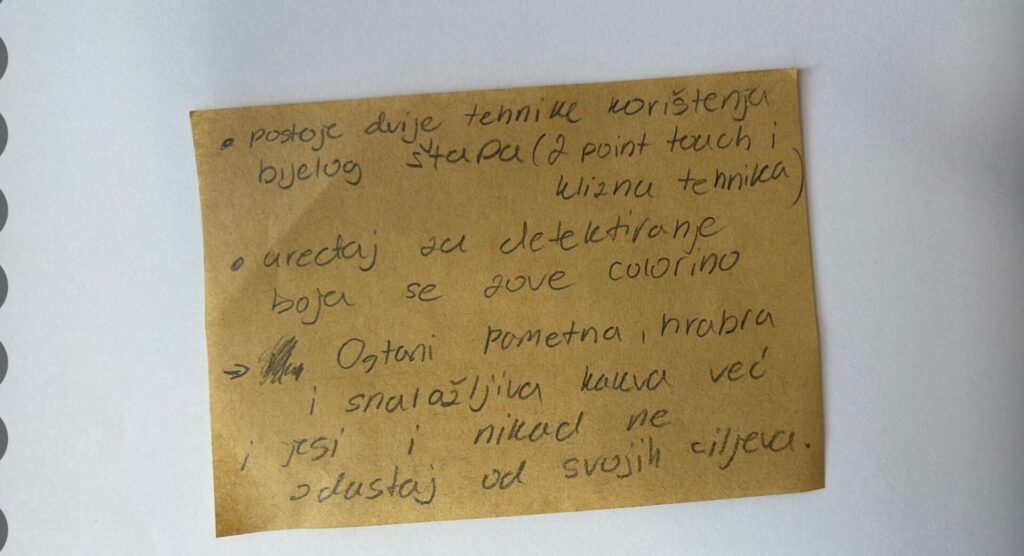 • postoje dvije tehnike korištenja
bijelog štapa (2 point touch i
klizna tehnika)
• uređaj za detektiranje
boja se zove colorino
→ Ostani pametna, hrabra
i snalažljiva kakva već
i jesi i nikad ne
odustaj od svojih ciljeva.